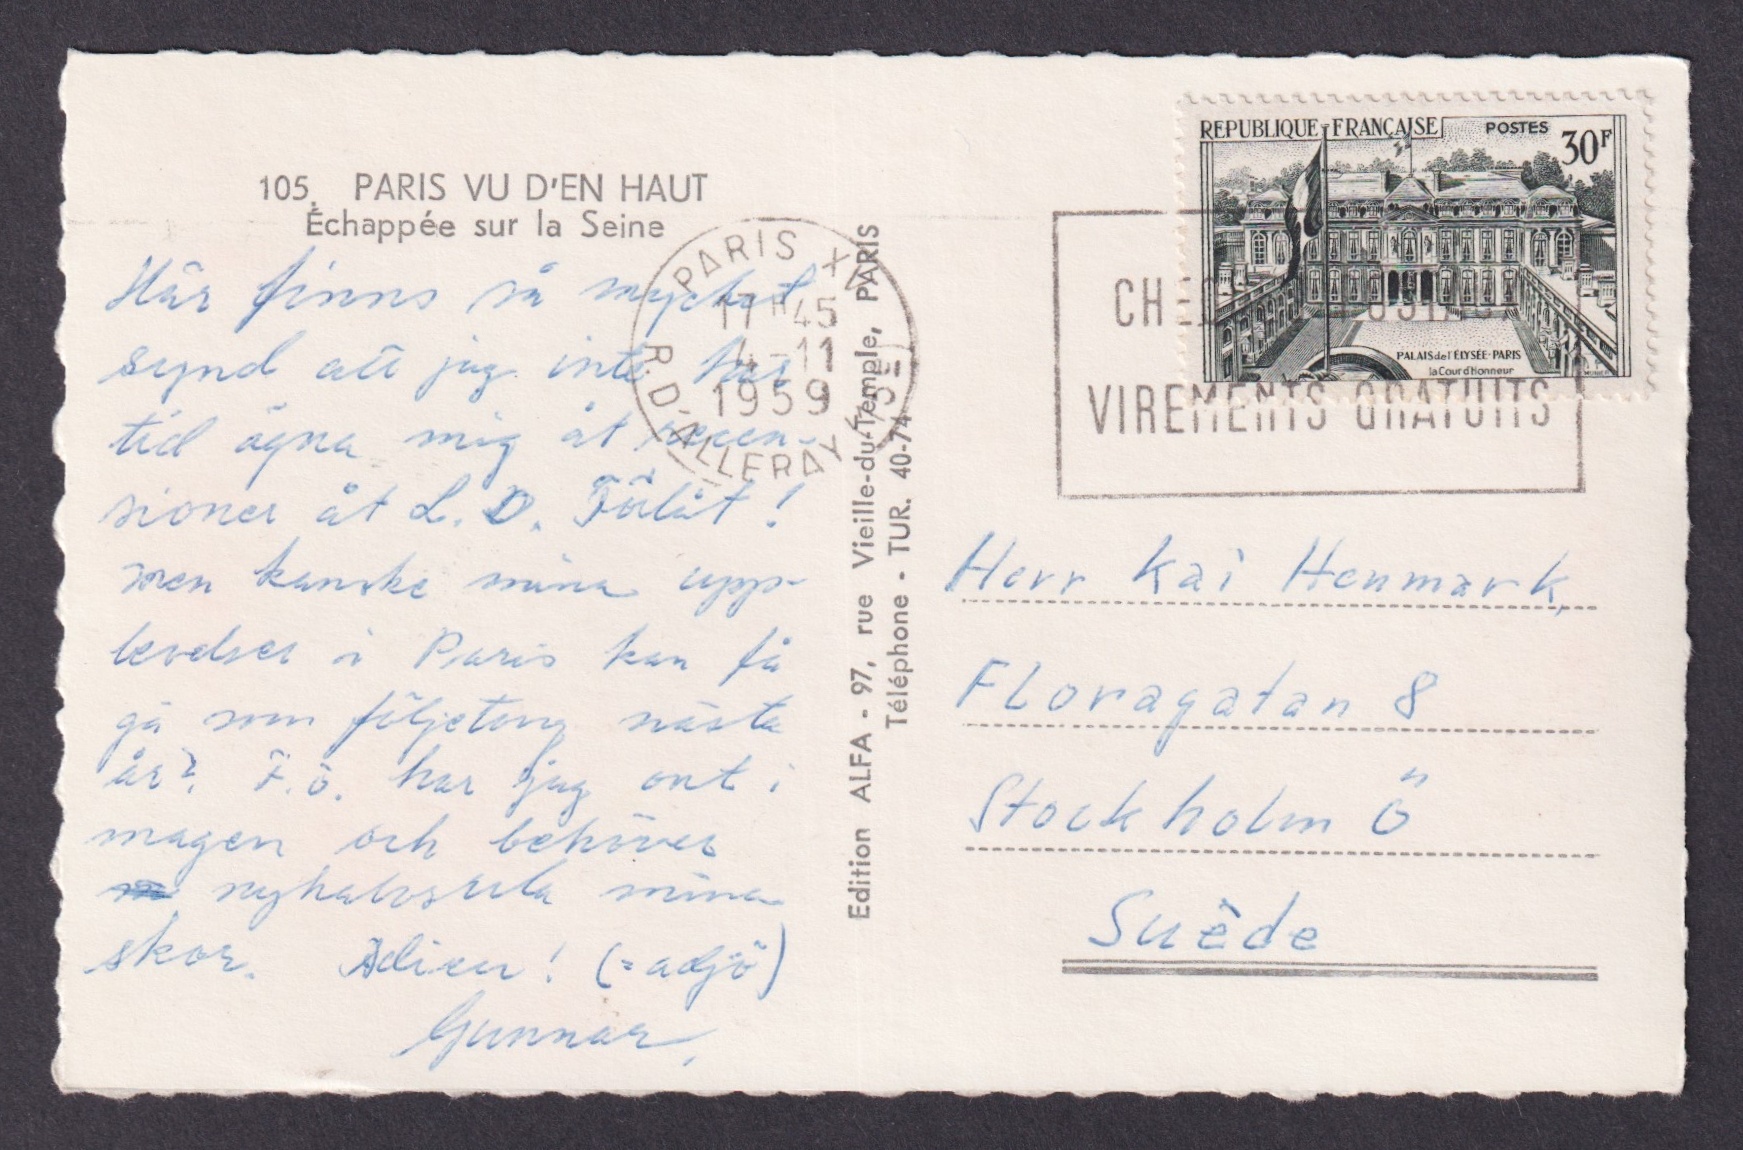 105. PARIS VU D'EN HAUT
Échappée sur la Seine
Här finns så mycket
synd att jag inte har
tid ägna mig åt recen-
sioner åt L. D. Förlåt!
men kanske mina upp-
levelser i Paris kan få
gå som följetong nästa
år? F.ö. har jag ont i
magen och behöver
nyhalvsula mina
skor. Adieu! (= adjö)
Gunnar.
PARIS XV
17H45
4-11
1959
R. D'ALLERAY (15E)
Edition ALFA - 97, rue Vieille-du-Temple, PARIS
Téléphone - TUR. 40-74
REPUBLIQUE FRANÇAISE POSTES 30F
PALAIS de l'ÉLYSÉE-PARIS
la Cour d'Honneur
VIREMENTS GRATUITS
Herr Kai Henmark,
Floragatan 8
Stockholm Ö
Suède